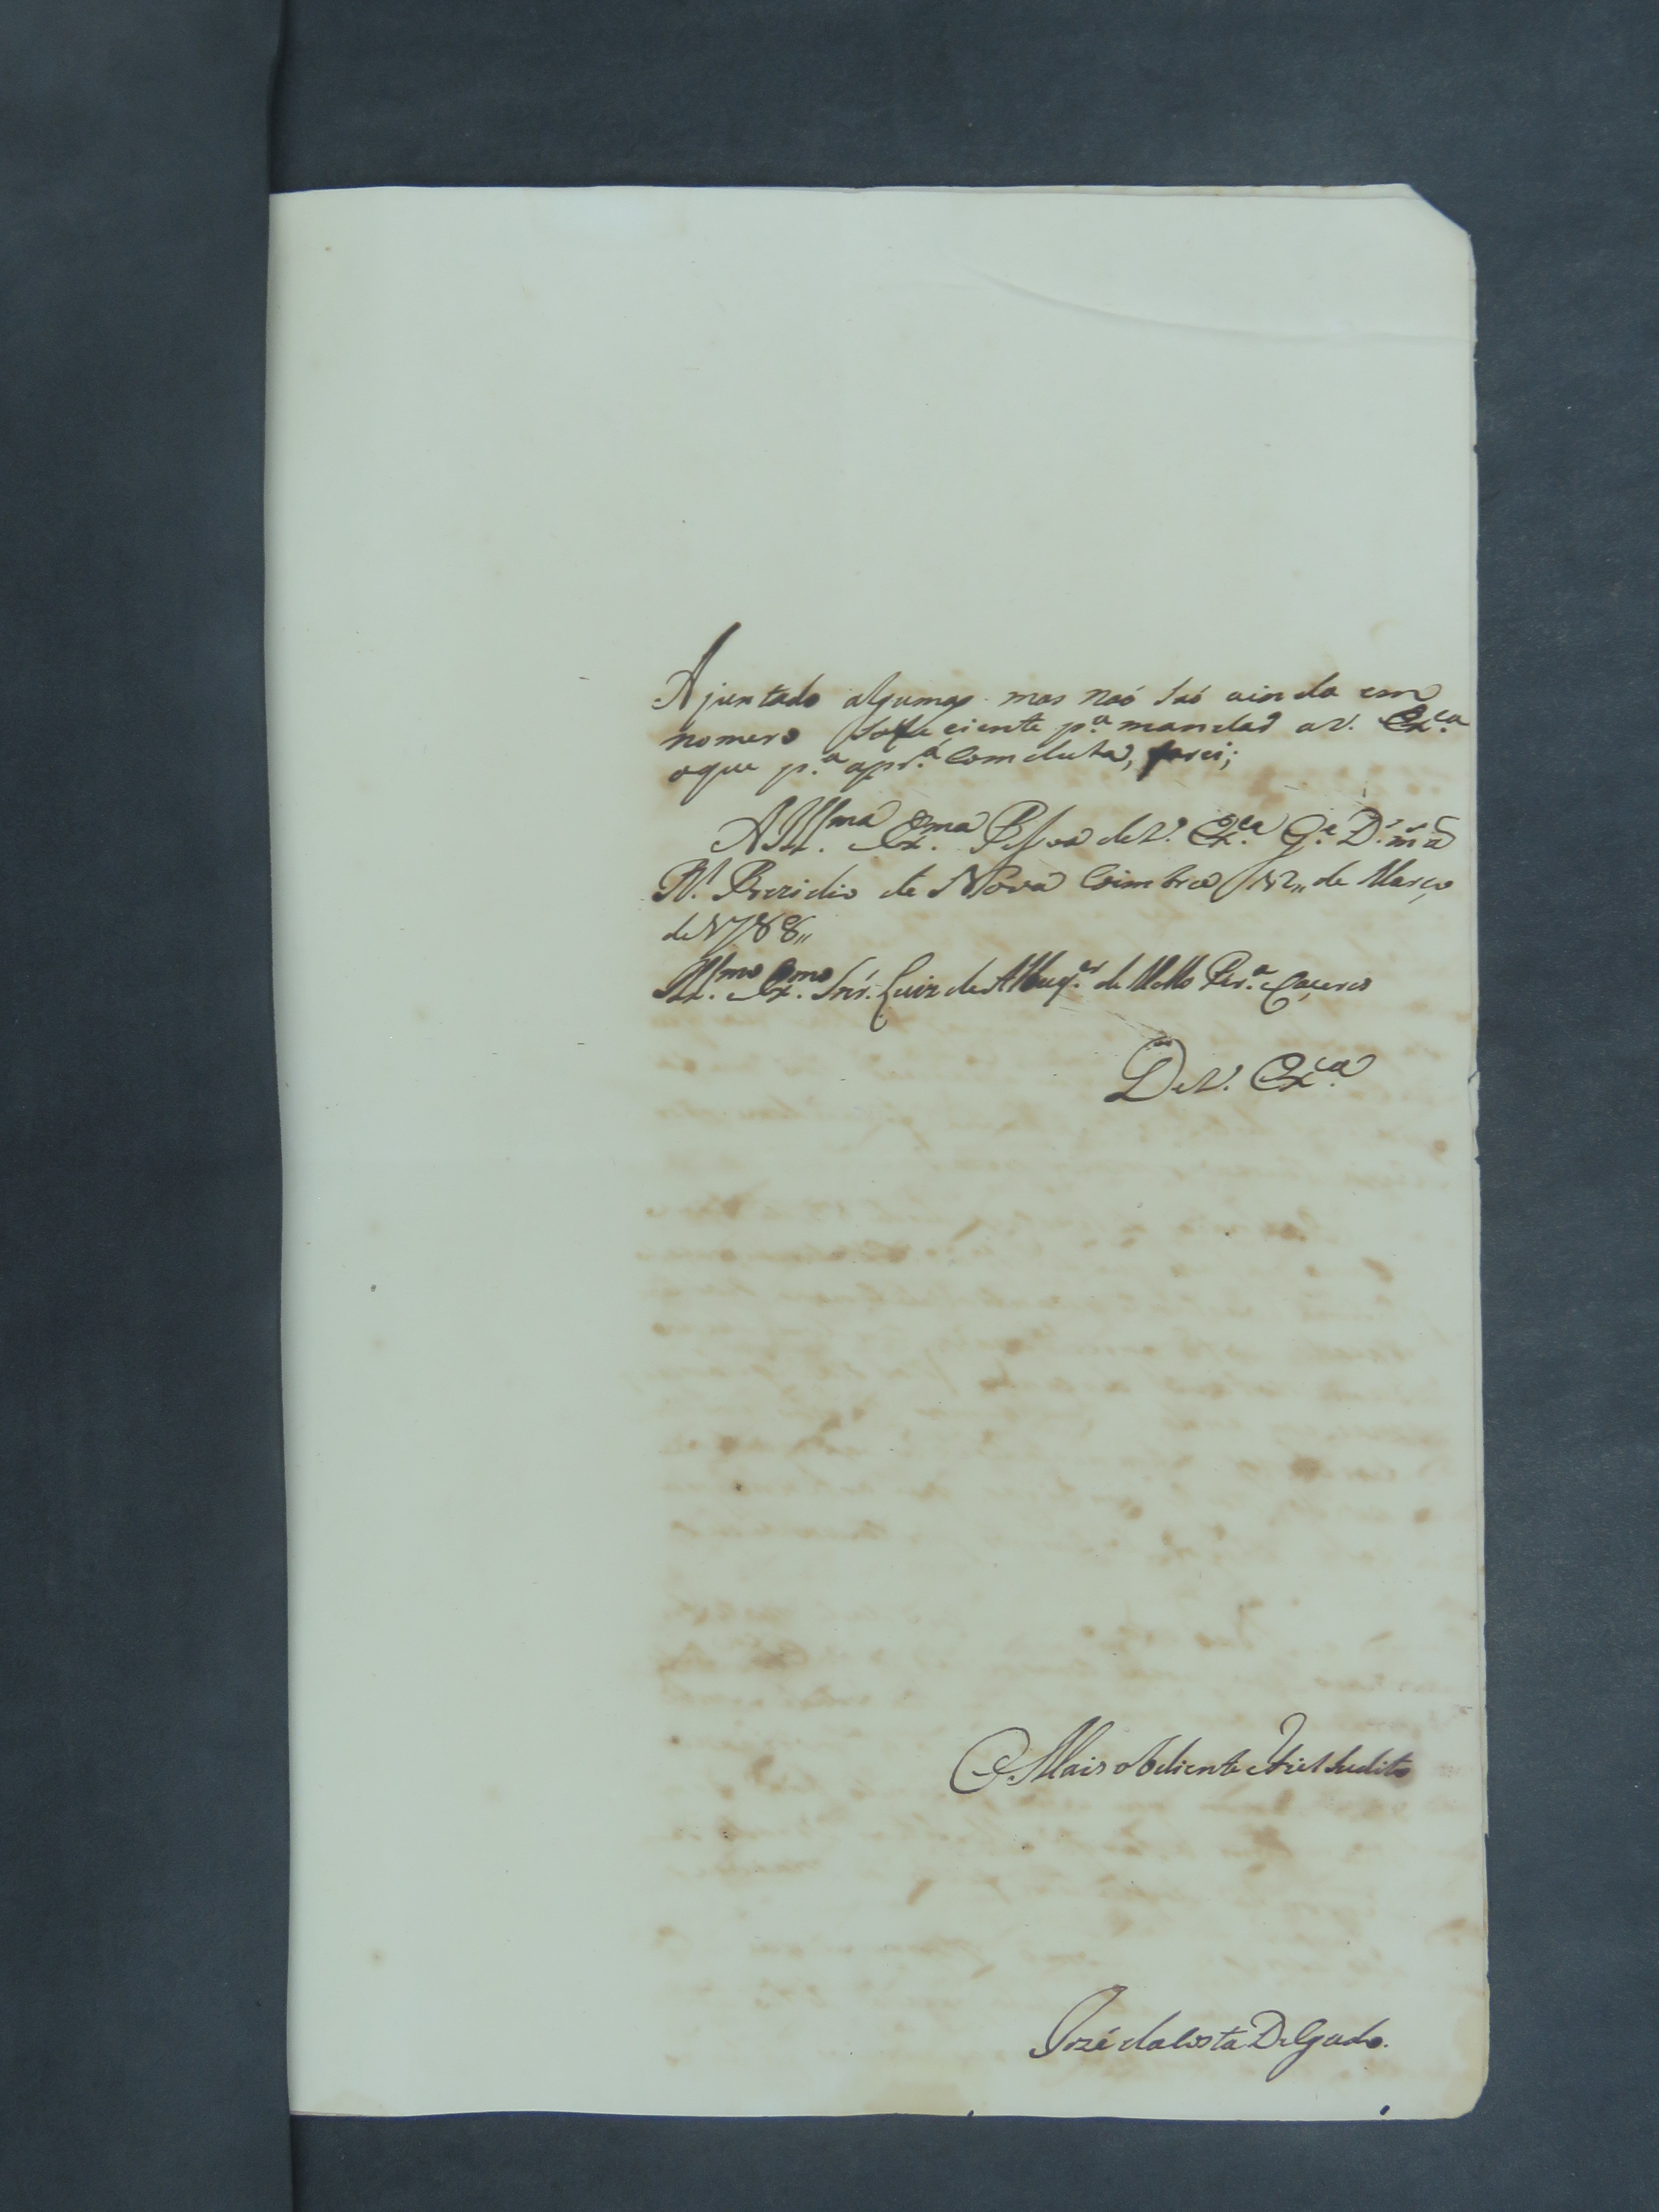 Ajuntado algumas mas naó saó ainda em
nomero sofeciente p.ª mandar a V. Ex.ca
oque p.ª apr.ª Comduta, farei;
A Ill.ma Ex.ma Pessoa de V. Ex.ca G.e D.s m.s a.s
R.l Prezidio de Nova Coimbra 12,, de Março
de 1788,,
Ill.mo Ex.mo Snr. Luiz de Albuq.er de Mello Per.ª Caçeres
De V. Ex.ca
O Mais obdiente e fiel Sudito
Jozé da Costa Delgado.